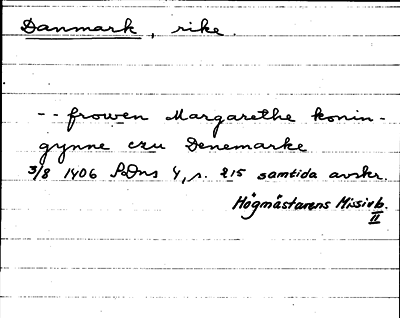 Danmark, rike.
-- frowen Margarethe konin-
gynne czu Denemarke
3/8 1406 SoDns 4, s. 215 samtida avskr.
Högmästarens Missivb.
II